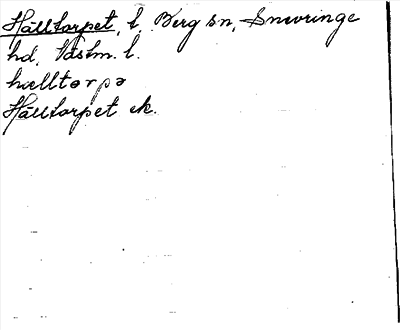 Hälltorpet, t. Berg sn, Snevringe
hd, Västm. l.
hælltorpə
Hälltorpet ek.